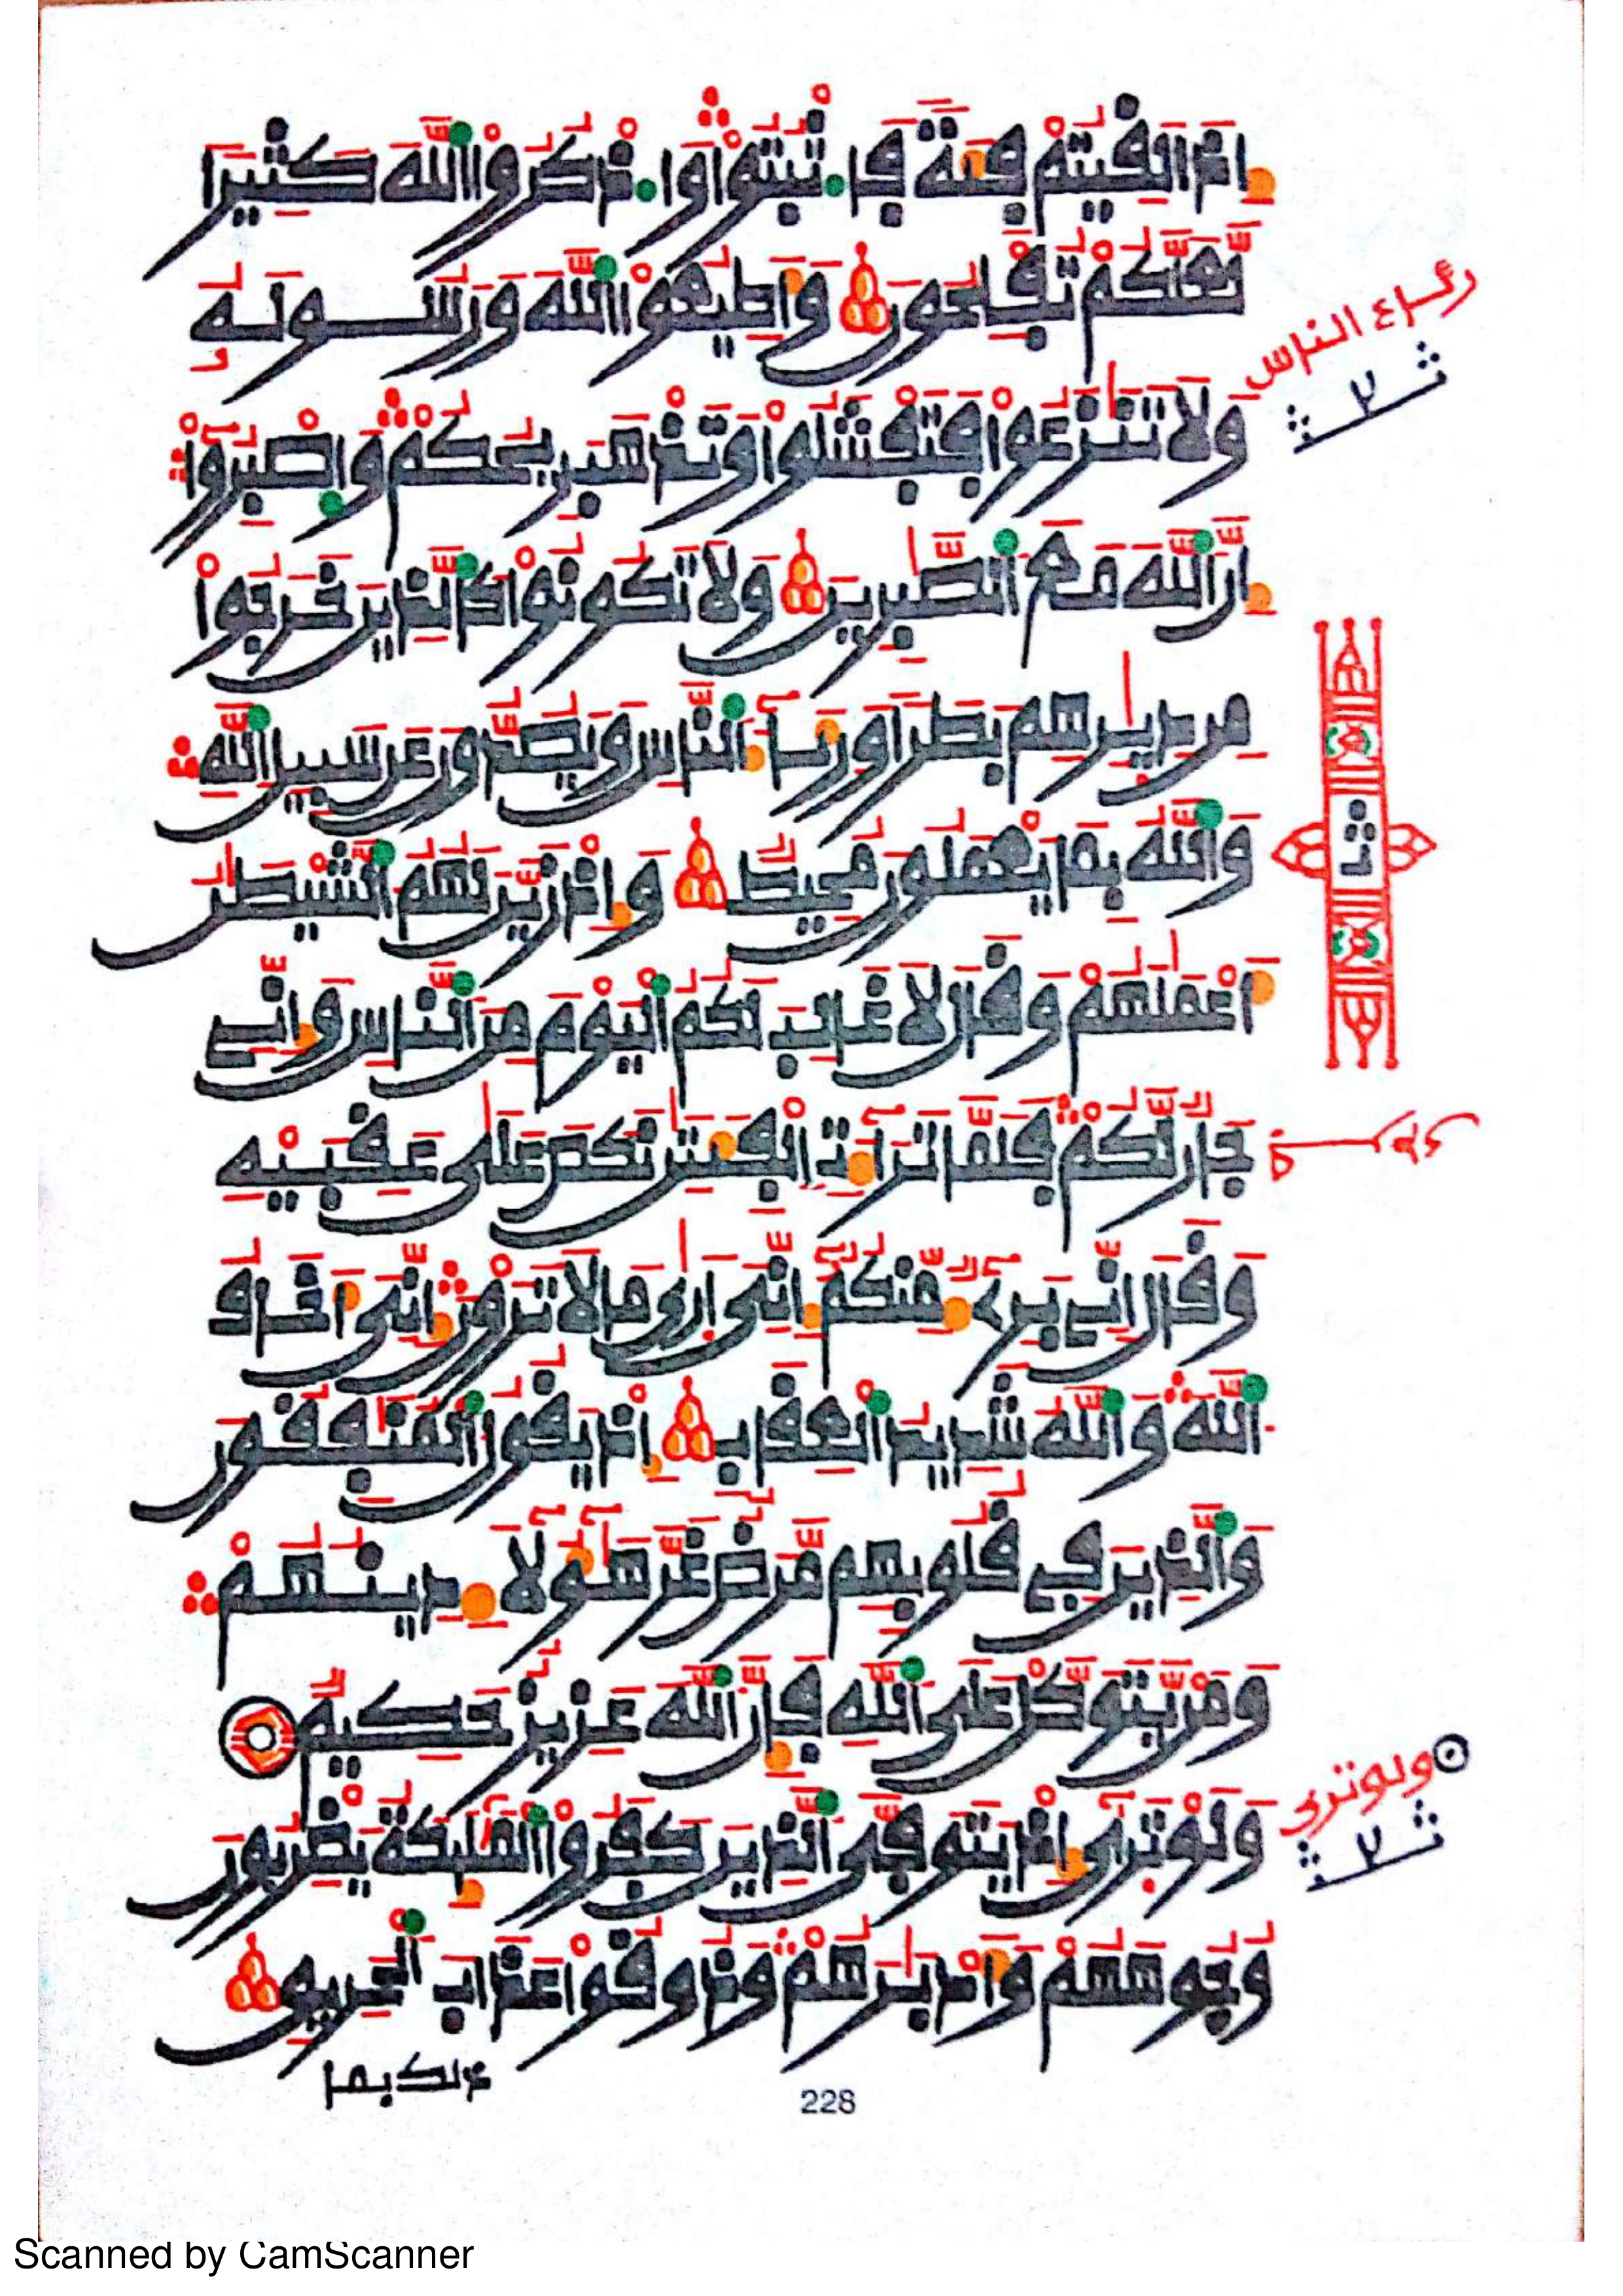 إِذَا لَقِيتُمْ فِئَةً فَاثْبُتُوا وَاذْكُرُوا اللَّهَ كَثِيرًا
لَّعَلَّكُمْ تُفْلِحُونَ وَأَطِيعُوا اللَّهَ وَرَسُولَهُ
رئاء الناس
وَلَا تَنَٰزَعُوا فَتَفْشَلُوا وَتَذْهَبَ رِيحُكُمْ وَاصْبِرُوا
إِنَّ اللَّهَ مَعَ الصَّٰبِرِينَ وَلَا تَكُونُوا كَالَّذِينَ خَرَجُوا
مِن دِيَٰرِهِم بَطَرًا وَرِئَآءَ النَّاسِ وَيَصُدُّونَ عَن سَبِيلِ اللَّهِ
وَاللَّهُ بِمَا يَعْمَلُونَ مُحِيطٌ وَإِذْ زَيَّنَ لَهُمُ الشَّيْطَٰنُ
أَعْمَٰلَهُمْ وَقَالَ لَا غَالِبَ لَكُمُ الْيَوْمَ مِنَ النَّاسِ وَإِنِّي
جَارٌ لَّكُمْ فَلَمَّا تَرَآءَتِ الْفِئَتَٰنِ نَكَصَ عَلَىٰ عَقِبَيْهِ
وَقَالَ إِنِّي بَرِيٓءٌ مِّنكُمْ إِنِّي أَرَىٰ مَا لَا تَرَوْنَ إِنِّي أَخَافُ
اللَّهَ وَاللَّهُ شَدِيدُ الْعِقَابِ إِذْ يَقُولُ الْمُنَٰفِقُونَ
وَالَّذِينَ فِي قُلُوبِهِم مَّرَضٌ غَرَّ هَٰٓؤُلَآءِ دِينُهُمْ
وَمَن يَتَوَكَّلْ عَلَى اللَّهِ فَإِنَّ اللَّهَ عَزِيزٌ حَكِيمٌ
ولو ترى
وَلَوْ تَرَىٰٓ إِذْ يَتَوَفَّى الَّذِينَ كَفَرُوا الْمَلَٰٓئِكَةُ يَضْرِبُونَ
وُجُوهَهُمْ وَأَدْبَٰرَهُمْ وَذُوقُوا عَذَابَ الْحَرِيقِ
ذلك بما
228
Scanned by CamScanner